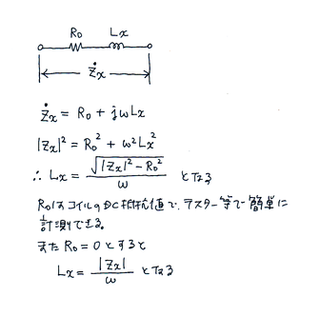 R₀ Lx
Żx
Żx = R₀ + jωLx
|Zx|² = R₀² + ω²Lx²
∴ Lx = √(|Zx|² − R₀²) / ω となる
R₀はコイルのDC抵抗値で、テスター等で簡単に
計測できる。
またR₀=0とすると
Lx = |Zx| / ω となる